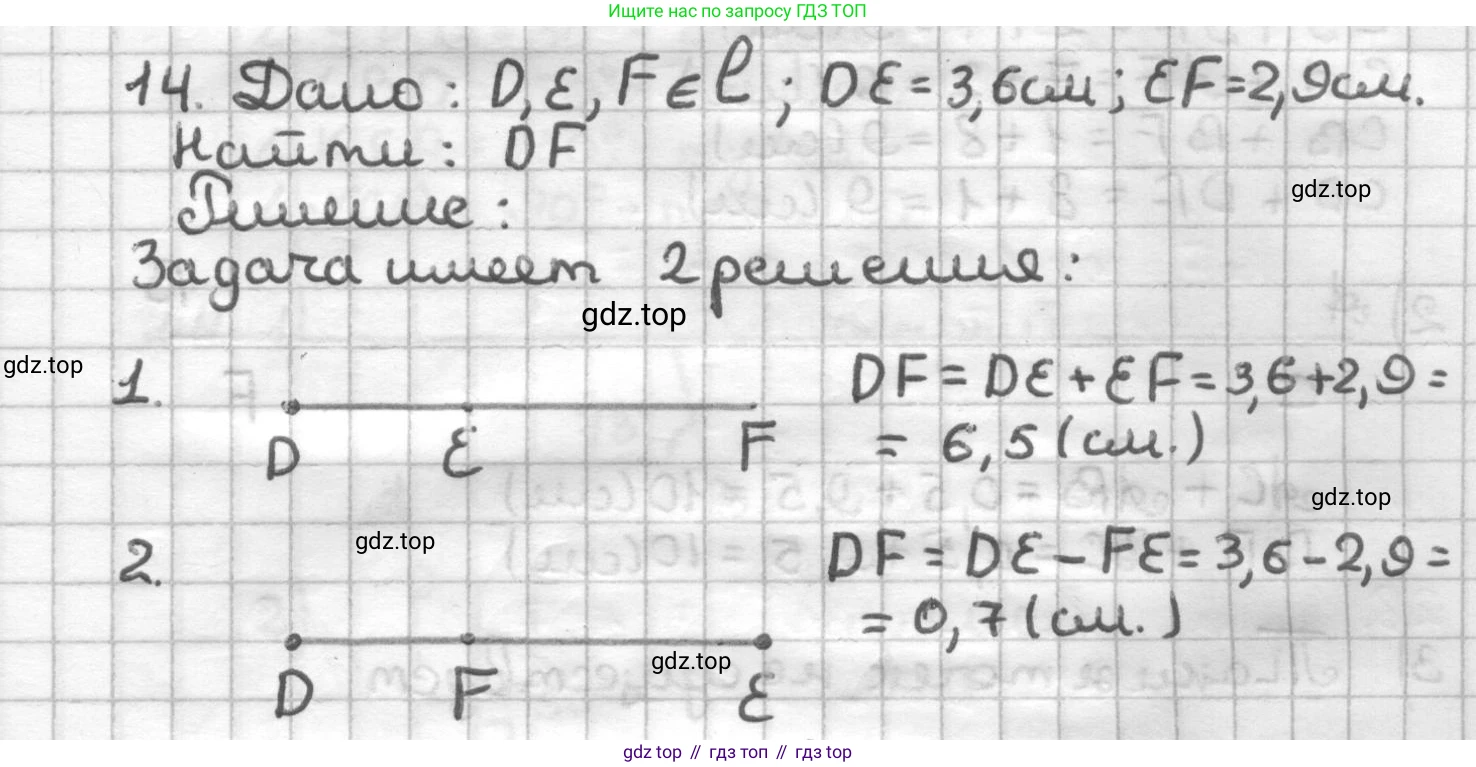 Ищите нас по запросу ГДЗ ТОП
14. Дано: D, E, F ∈ l; DE = 3,6см; EF = 2,9см.
Найти: DF
gdz.top
Решение:
Задача имеет 2 решения:
gdz.top
gdz.top
1.
D E F
DF = DE + EF = 3,6 + 2,9 =
= 6,5 (см.)
gdz.top
gdz.top
2.
D F E
DF = DE - FE = 3,6 - 2,9 =
= 0,7 (см.)
gdz.top
gdz.top // гдз топ // гдз top